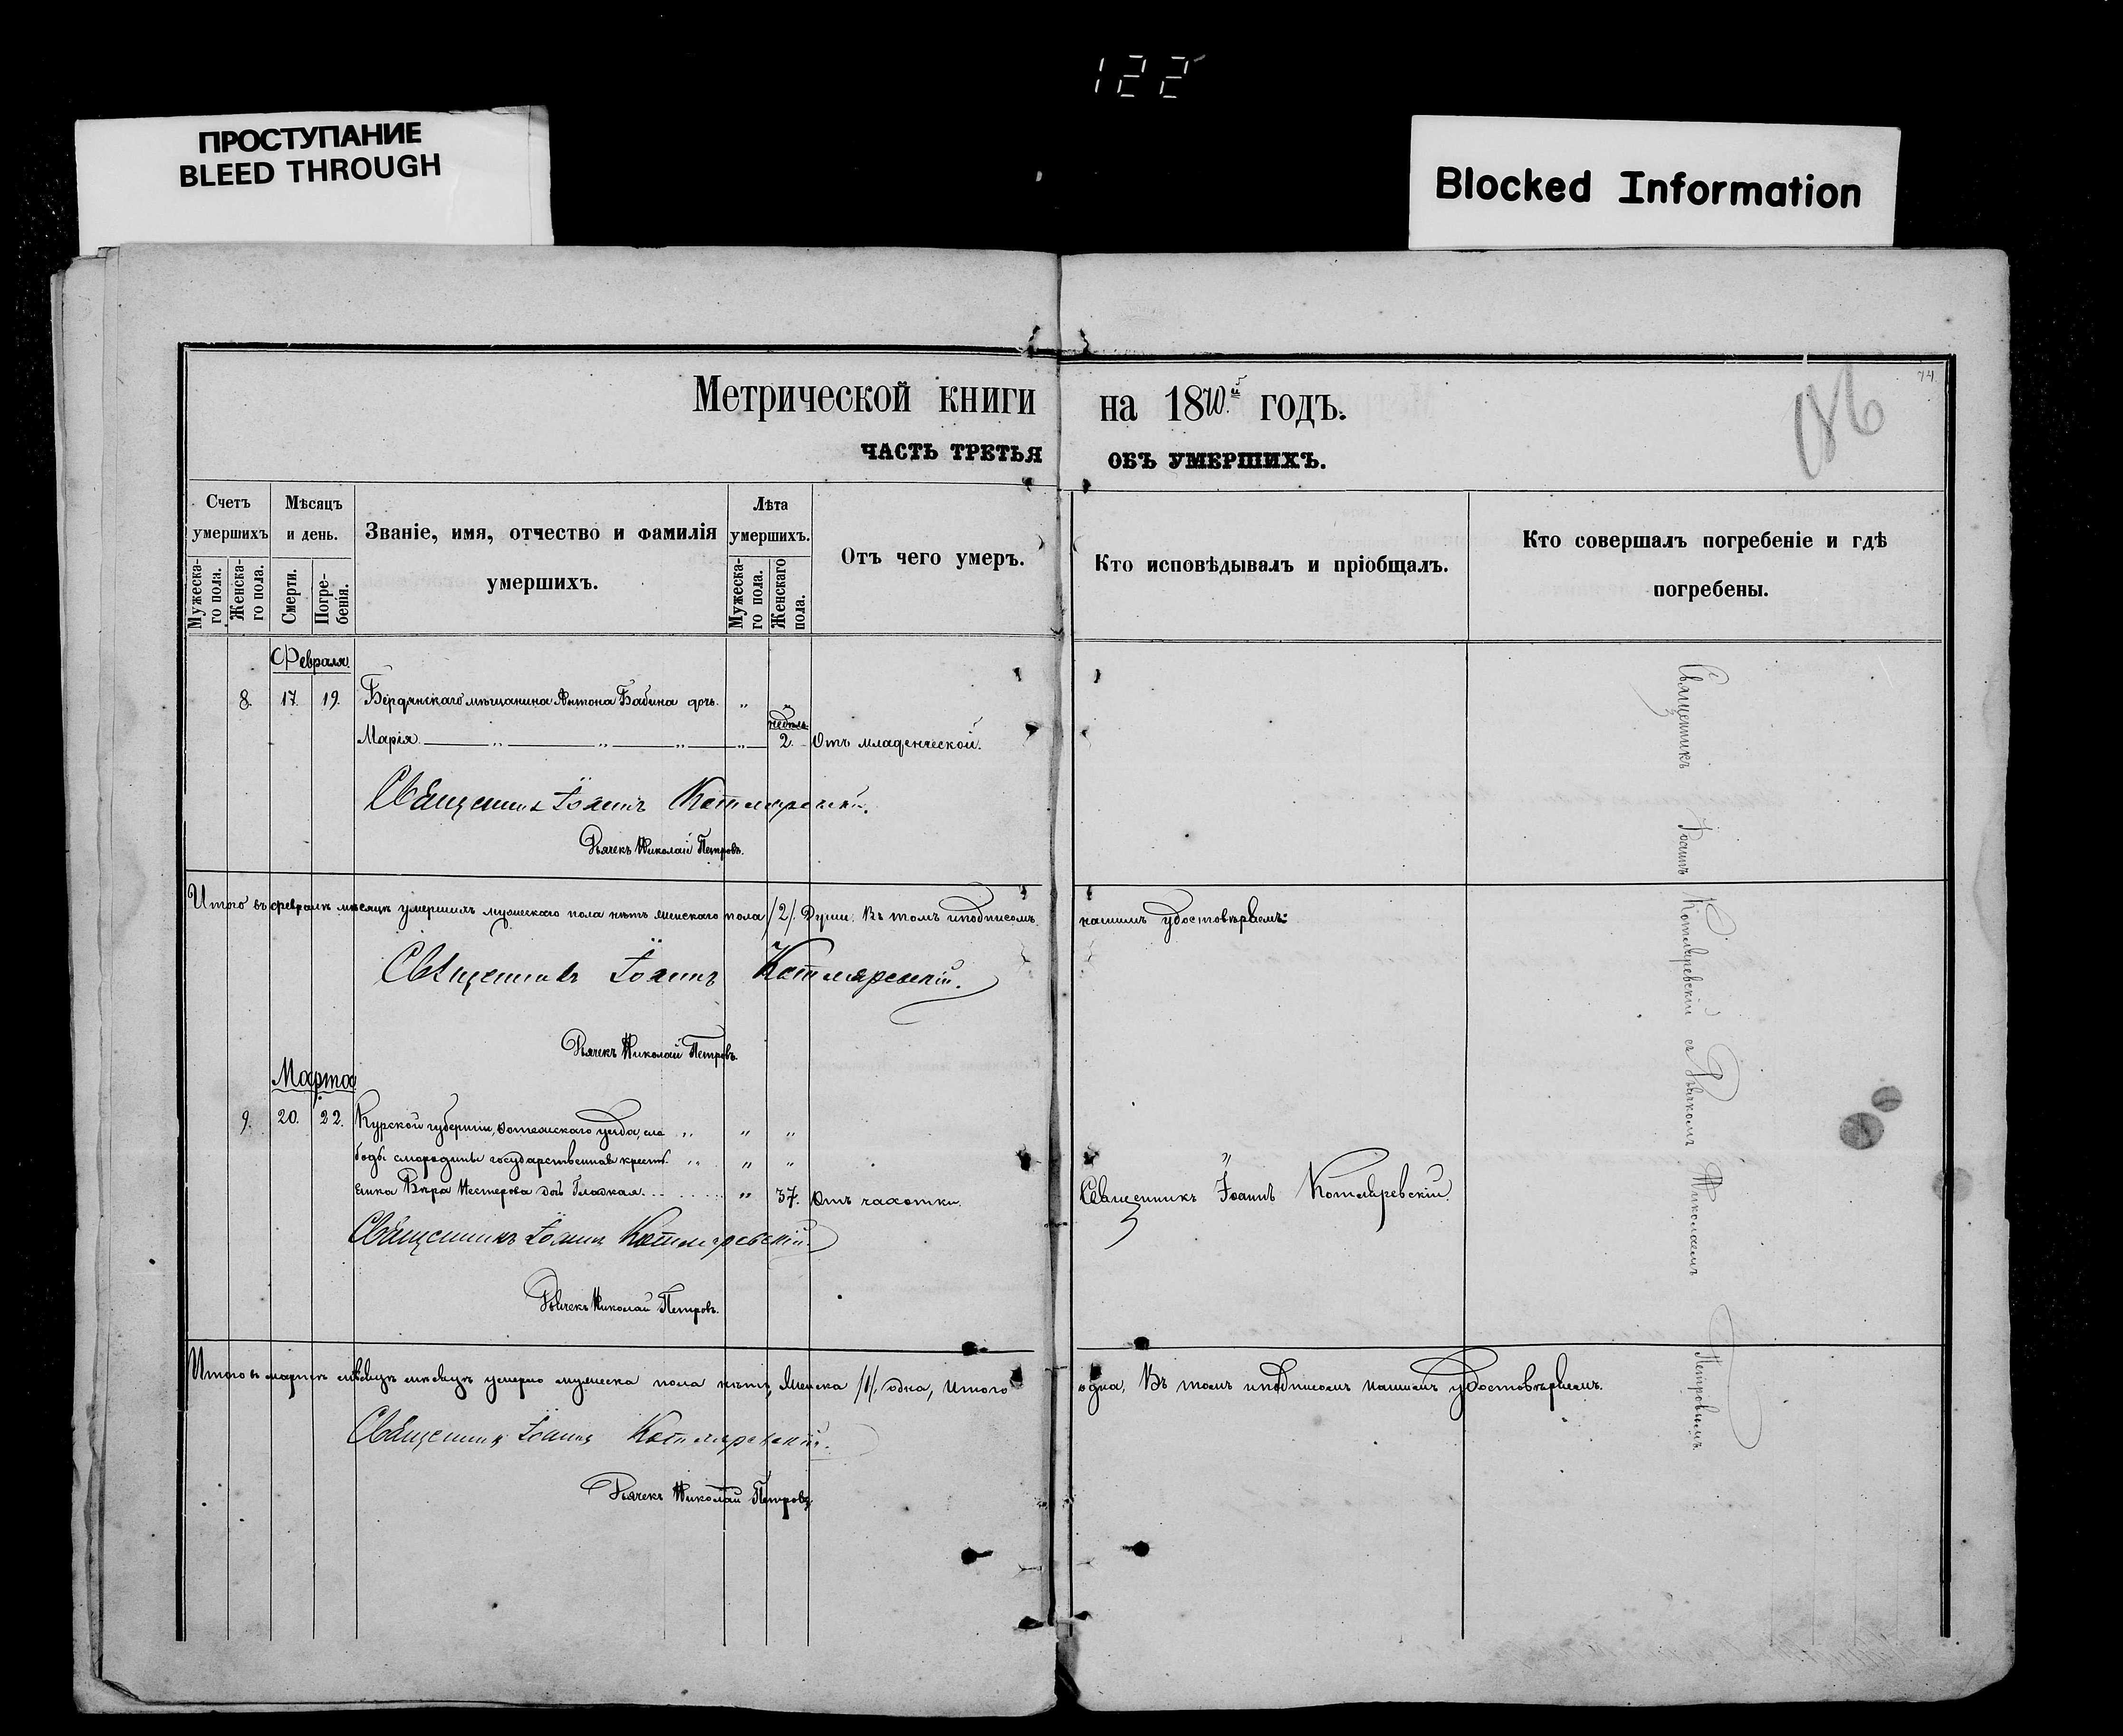 122
ПРОСТУПАНИЕ
BLEED THROUGH
Blocked Information
74.
Метрической книги на 1870.й годъ.
ЧАСТЬ ТРЕТЬЯ ОБЪ УМЕРШИХЪ.
Счетъ умершихъ
Мѣсяцъ и день.
Званіе, имя, отчество и фамилія умершихъ.
Лѣта умершихъ.
Отъ чего умеръ.
Кто исповѣдывалъ и пріобщалъ.
Кто совершалъ погребеніе и гдѣ погребены.
Мужеска-го пола.
Женска-го пола.
Смерти.
Погре-бенія.
Мужеска-го пола.
Женскаго пола.
Февраля.
8. 17. 19. Бердянскаго мѣщанина Антона Бабина дочь „ „
недѣль
Марія „ „ „ „ 2. Отъ младенческой.
Священникъ Іоаннъ Котляревскій.
Дьячекъ Николай Петровъ.
Итого въ февралѣ мѣсяцѣ умершихъ мужескаго пола нѣтъ женскаго пола /2/. Души. Въ томъ и подписомъ
нашимъ удостовѣряемъ:
Священникъ Іоаннъ Котляревскій.
Дьячекъ Николай Петровъ.
Марта
9. 20. 22. Курской губерніи, уезда, сло „ „ „
боды смородины государственная крестъ „ „ „
янка Вѣра Нестерова дочь Гладкая „ 37. Отъ чахотки.
Священникъ Іоаннъ Котляревскій.
Священникъ Іоаннъ Котляревскій.
Дьячекъ Николай Петровъ.
Итого въ мартѣ мѣсяцѣ умерло мужеска пола нѣтъ, женска /1/. одна, Итого
одна, Въ томъ и подписомъ нашимъ удостовѣряемъ.
Священникъ Іоаннъ Котляревскій.
Дьячекъ Николай Петровъ
Священникъ Іоаннъ Котляревскій съ Дьячкомъ Николаемъ Петровымъ